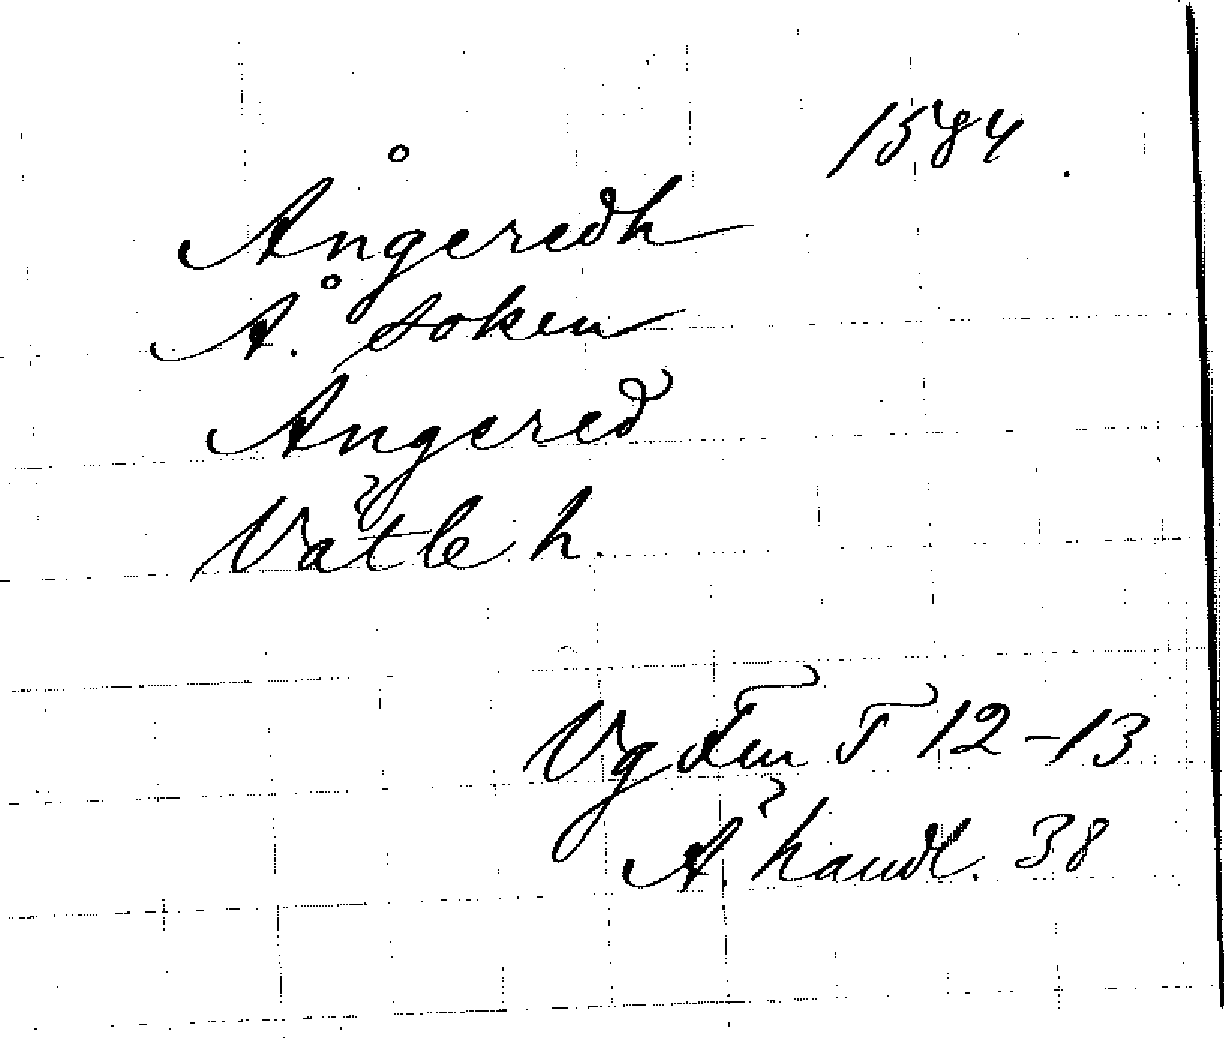 1584
Ångeredh
Å. soken
Angered
Vätle h.
Vg 12-13
Ä. handl. 38